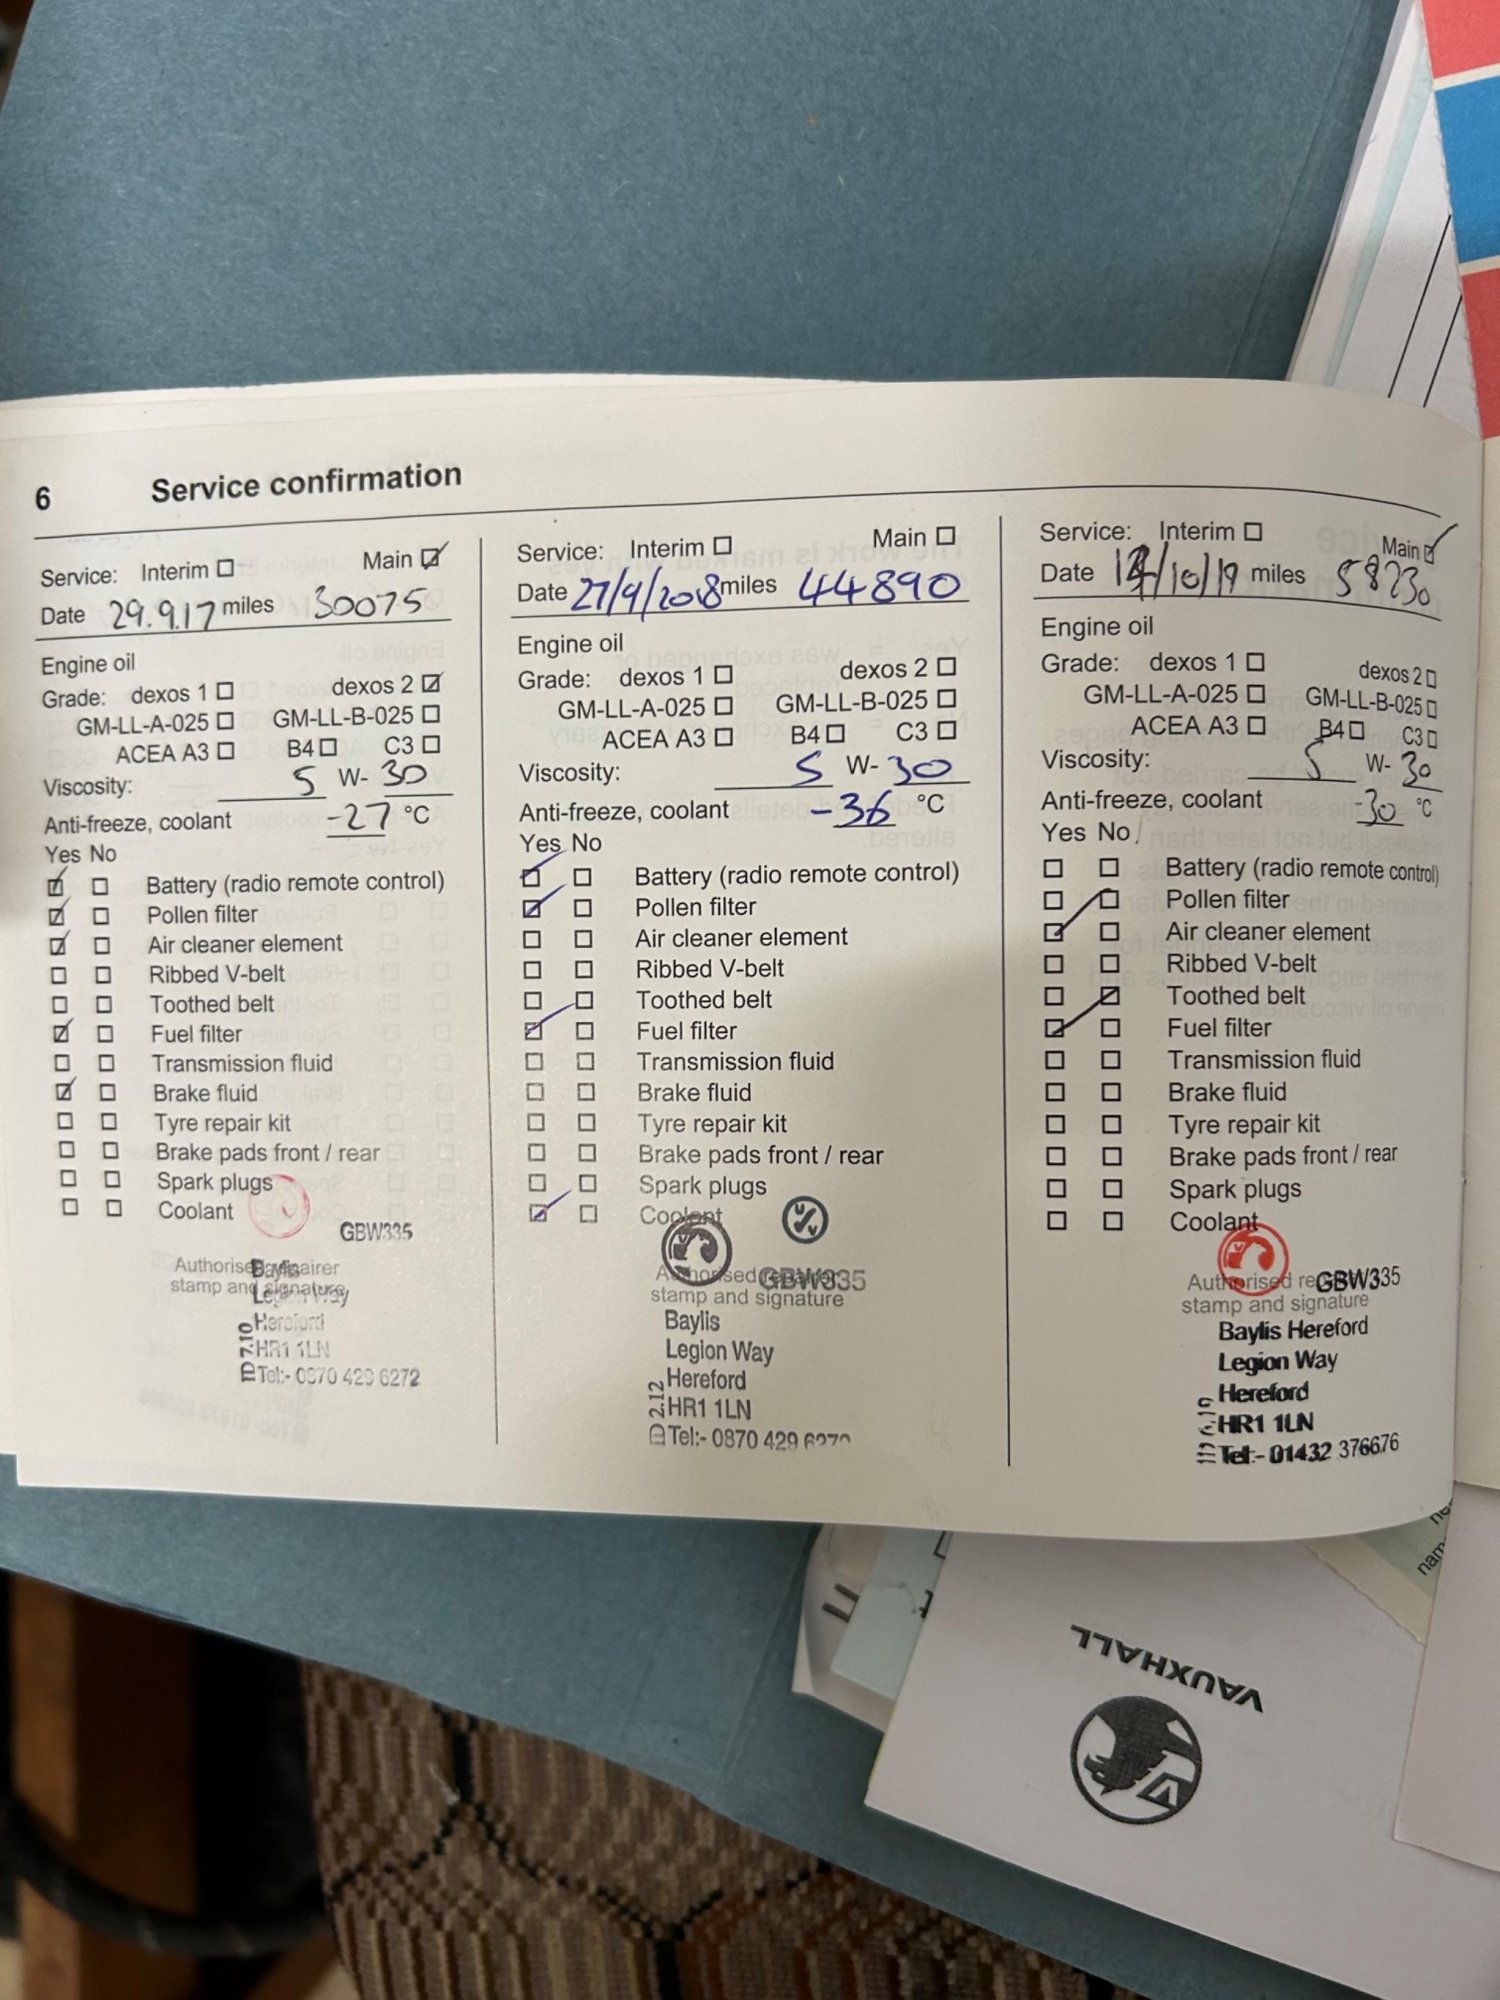 6 Service confirmation
Service: Interim ☐ Main ☑
Date 29.9.17 miles 30075
Engine oil
Grade: dexos 1 ☐ dexos 2 ☑
GM-LL-A-025 ☐ GM-LL-B-025 ☐
ACEA A3 ☐ B4 ☐ C3 ☐
Viscosity: 5 W- 30
Anti-freeze, coolant -27 °C
Yes No
☑ ☐ Battery (radio remote control)
☑ ☐ Pollen filter
☑ ☐ Air cleaner element
☐ ☐ Ribbed V-belt
☐ ☐ Toothed belt
☑ ☐ Fuel filter
☐ ☐ Transmission fluid
☑ ☐ Brake fluid
☐ ☐ Tyre repair kit
☐ ☐ Brake pads front / rear
☐ ☐ Spark plugs
☐ ☐ Coolant
GBW335
Authorised repairer
stamp and signature
Baylis
Legion Way
Hereford
HR1 1LN
Tel:- 0870 429 6272
ID 7.10
Service: Interim ☐ Main ☐
Date 27/9/2018 miles 44890
Engine oil
Grade: dexos 1 ☐ dexos 2 ☐
GM-LL-A-025 ☐ GM-LL-B-025 ☐
ACEA A3 ☐ B4 ☐ C3 ☐
Viscosity: 5 W- 30
Anti-freeze, coolant -36 °C
Yes No
☑ ☐ Battery (radio remote control)
☑ ☐ Pollen filter
☐ ☐ Air cleaner element
☐ ☐ Ribbed V-belt
☐ ☐ Toothed belt
☑ ☐ Fuel filter
☐ ☐ Transmission fluid
☐ ☐ Brake fluid
☐ ☐ Tyre repair kit
☐ ☐ Brake pads front / rear
☐ ☐ Spark plugs
☑ ☐ Coolant
GBW335
Authorised repairer
stamp and signature
Baylis
Legion Way
Hereford
HR1 1LN
Tel:- 0870 429 6272
ID 2.12
Service: Interim ☐ Main ☑
Date /10/19 miles 58230
Engine oil
Grade: dexos 1 ☐ dexos 2 ☐
GM-LL-A-025 ☐ GM-LL-B-025 ☐
ACEA A3 ☐ B4 ☐ C3 ☐
Viscosity: 5 W- 30
Anti-freeze, coolant -30 °C
Yes No
☐ ☐ Battery (radio remote control)
☐ ☐ Pollen filter
☑ ☐ Air cleaner element
☐ ☐ Ribbed V-belt
☐ ☐ Toothed belt
☑ ☐ Fuel filter
☐ ☐ Transmission fluid
☐ ☐ Brake fluid
☐ ☐ Tyre repair kit
☐ ☐ Brake pads front / rear
☐ ☐ Spark plugs
☐ ☐ Coolant
GBW335
Authorised
stamp and signature
Baylis Hereford
Legion Way
Hereford
HR1 1LN
Tel:- 01432 376676
VAUXHALL